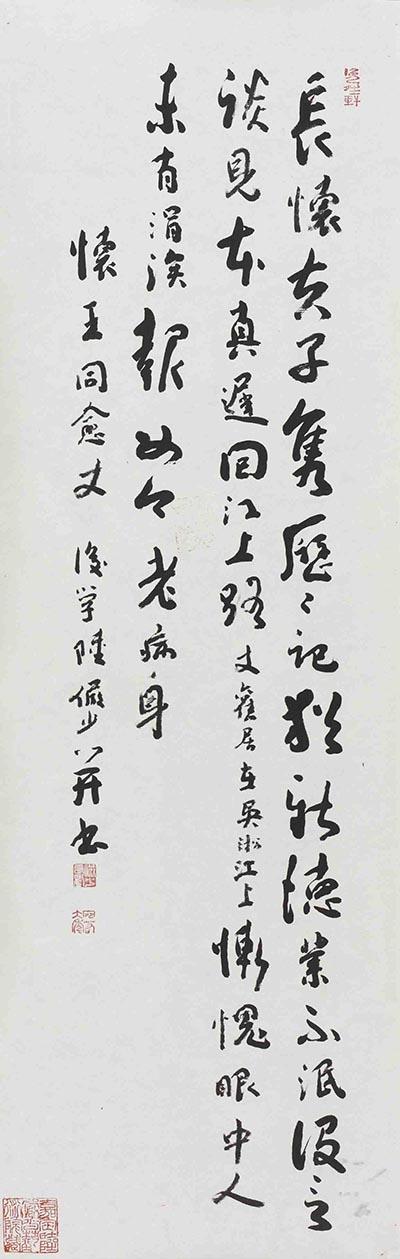 長懷夫子雋歷〻記猶新德業不泯沒言
談見本真遲回江上路丈舊居在吳淞江上慚愧眼中人
未有涓涘報如今老病身
懷王同愈丈 後学陸儼少并書